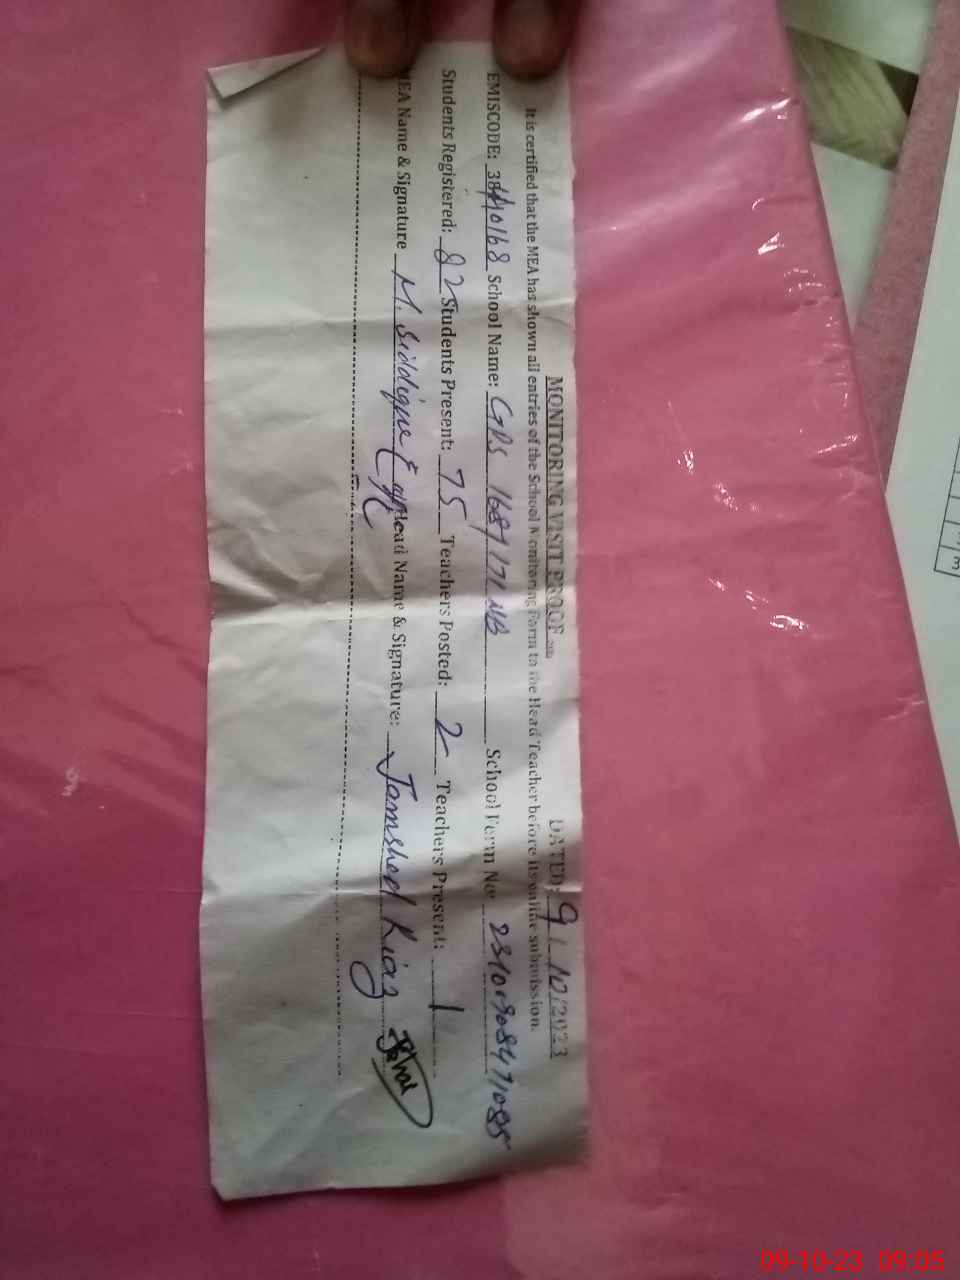 MONITORING VISIT PROOF DATED: 9/10/2023
It is certified that the MEA has shown all entries of the School Monitoring Form to the Head Teacher before its online submission.
EMISCODE: School Name: GPS 168/171 NB School Form No:
Students Registered: 82 Students Present: 75 Teachers Posted: 2 Teachers Present: 1
MEA Name & Signature M. Siddique Head Name & Signature: Jamshed Riaz
09-10-23 09:05